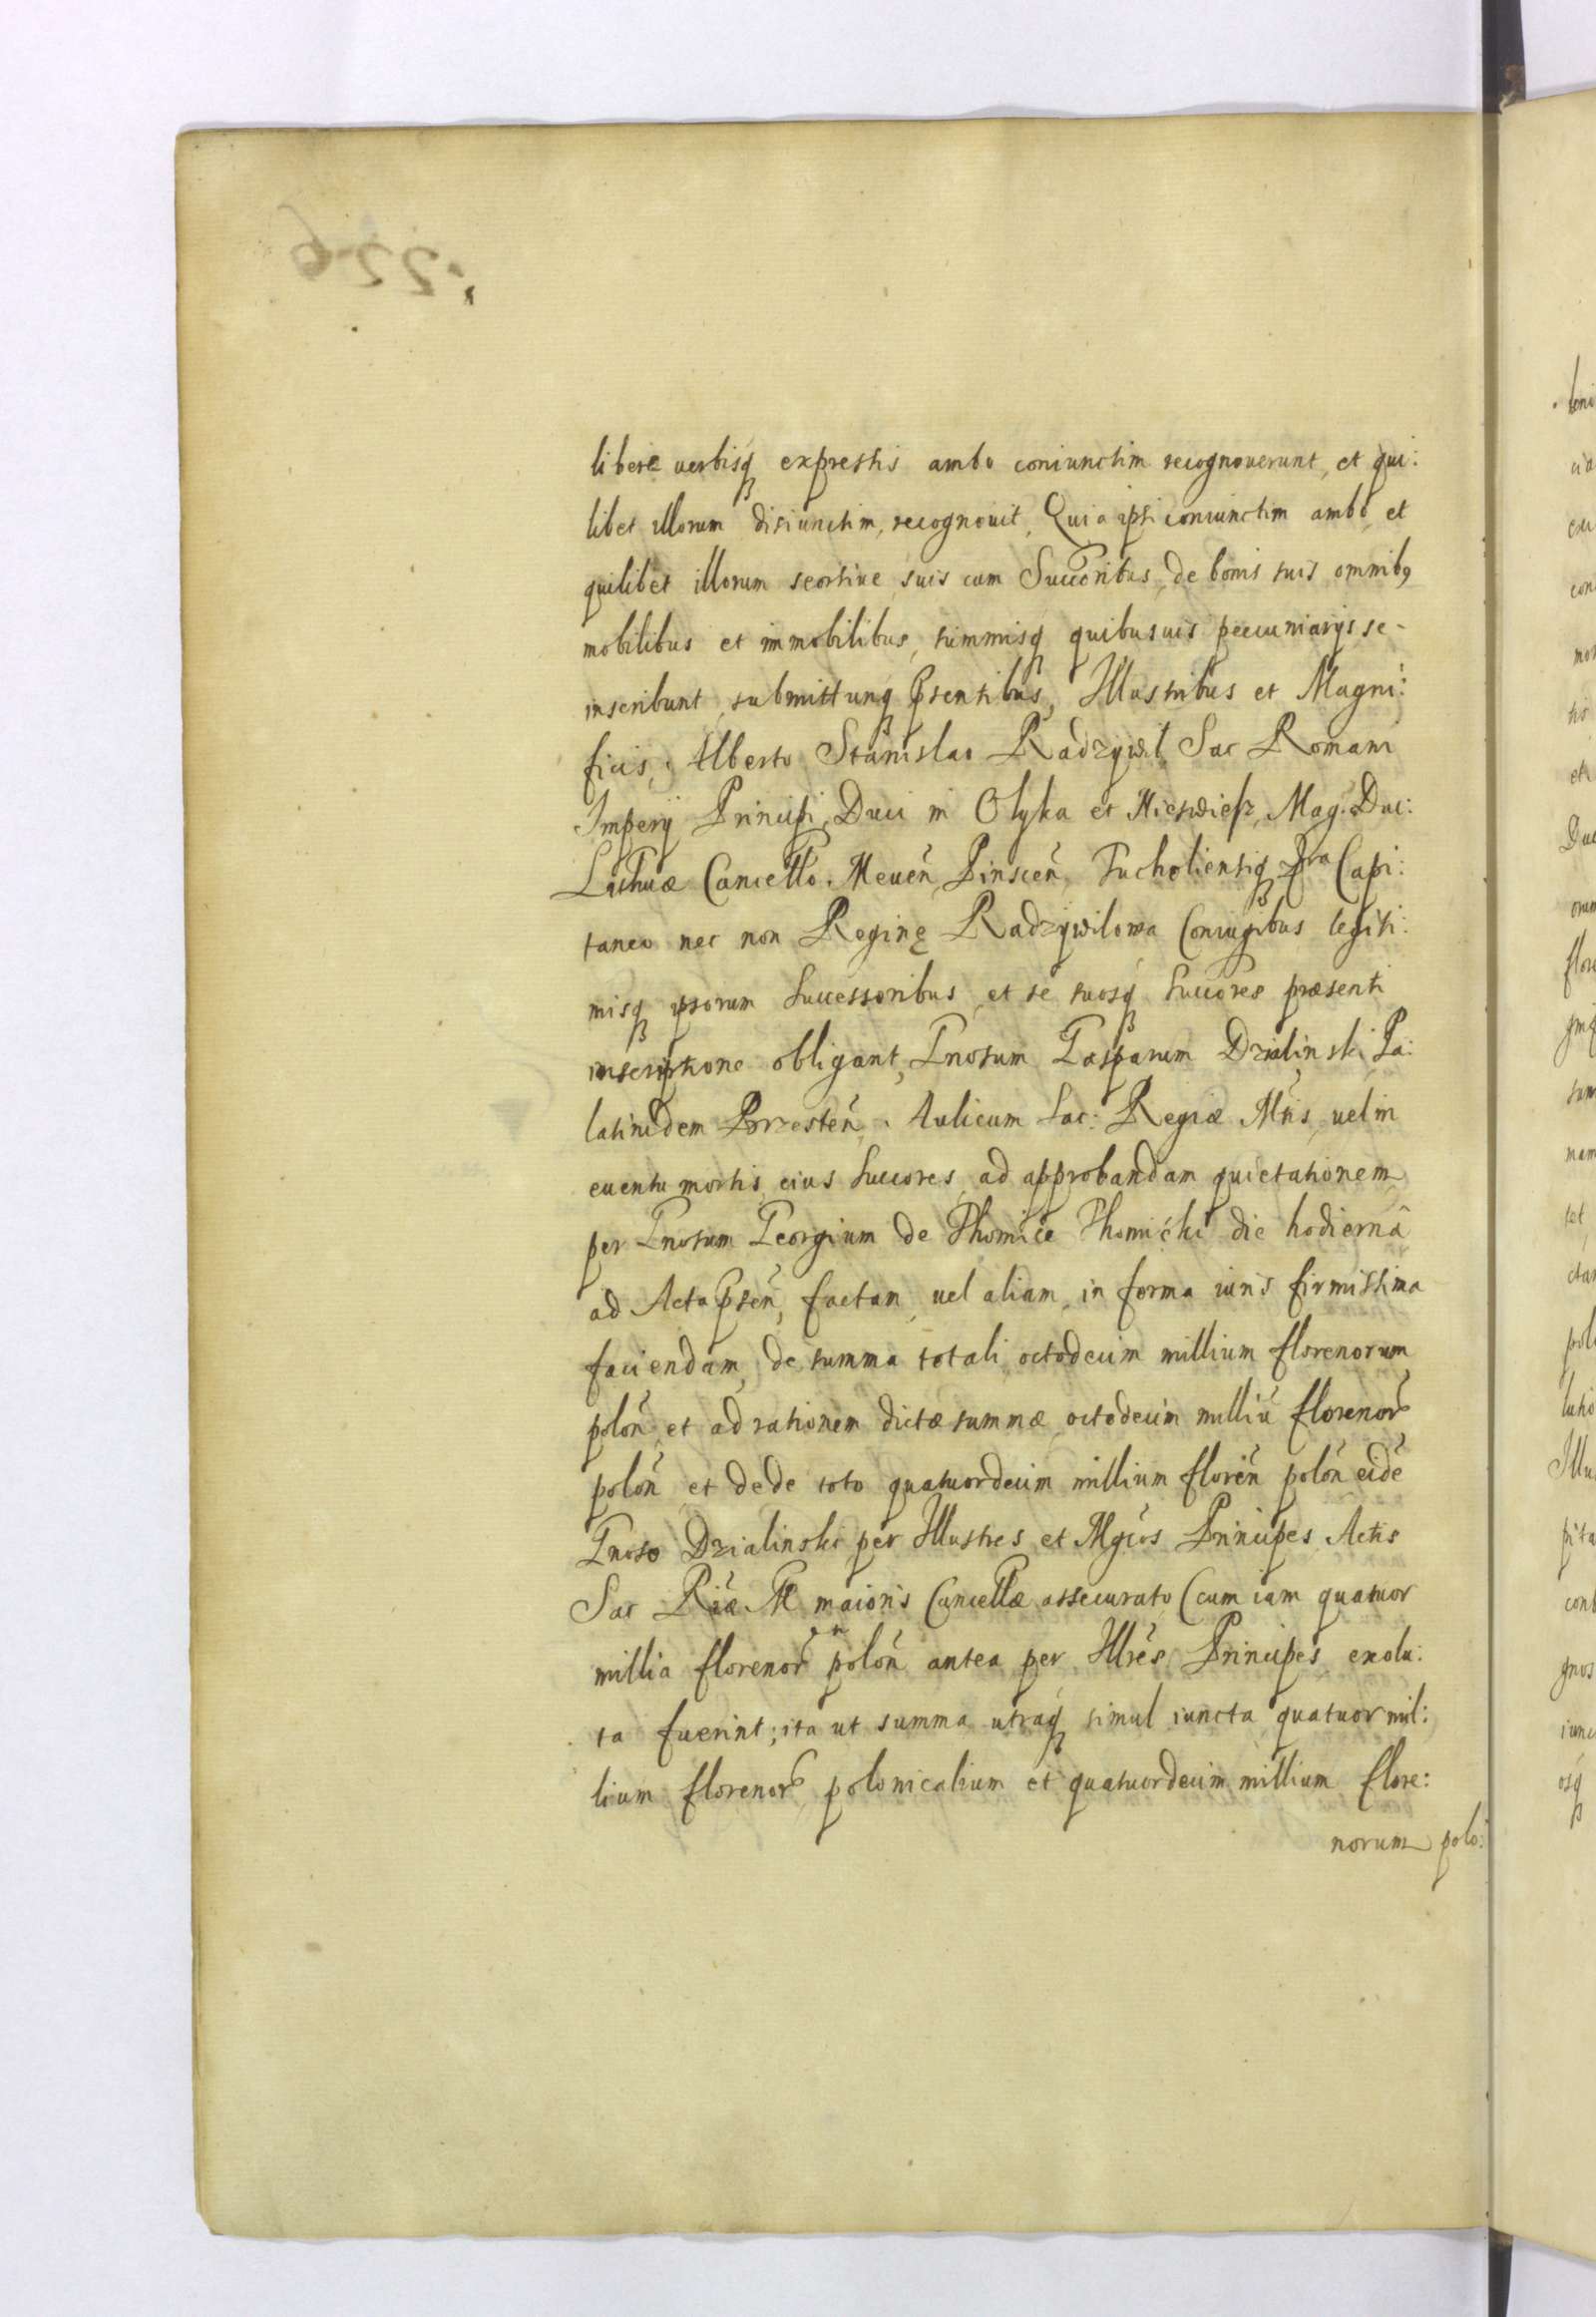 libere verbisq expressis ambo coniunctim recognoverunt, et qui:
libet illorum disiunctim, recognouit, Quia ipsi coniunctim ambo, et
quilibet illorum seorsiue, suis cum Succoribus, de bonis suis omnibq
mobilibus et immobilibus, summisq quibusuis pecuniarijs se-
inscribunt, submittunq psentibus, Illustribus et Magni:
ficis, Alberto Stanislao Radzywil, Sac Romani
Imperij Principi, Duci in Olyka et Nieswiesz, Mag. Duc:
Lithuæ Cancello. Meuen̄, Pinscen̄, Tucholiensiq Capi:
taneo nec non Reginę Radzywilowa Coniugibus legiti:
misq ipsorum Successoribus, et se suosq Succores præsenti
inscriptione obligant, Gnosum Gasparum Dzialinski Pa:
latinidem Brzesten̄. Aulicum Sac: Regiæ Mtis, uel in
euentu mortis eius Succores, ad approbandam quietationem
per Gnosum Georgium de Thomice Thomicki die hodiernâ
ad Acta psen̄, factam, uel aliam, in forma iuris firmissima
faciendam, de summa totali octodecim millium florenorum
polon̄, et ad rationem dictæ summæ octodecim milliū florenor
polon̄, et dede toto quatuordecim millium floren̄ polon̄ eidē
Gnoso Dzialinski per Illustres et Mgcos Principes Actis
Sac Riæ M maioris Cancellæ assecurato (cum iam quatuor
millia florenor polon̄ antea per Illres Principes exolu:
ta fuerint; ita ut summa utraq simul iuncta quatuor mil:
lium florenor polonicalium et quatuordecim millium flore:
norum polo: